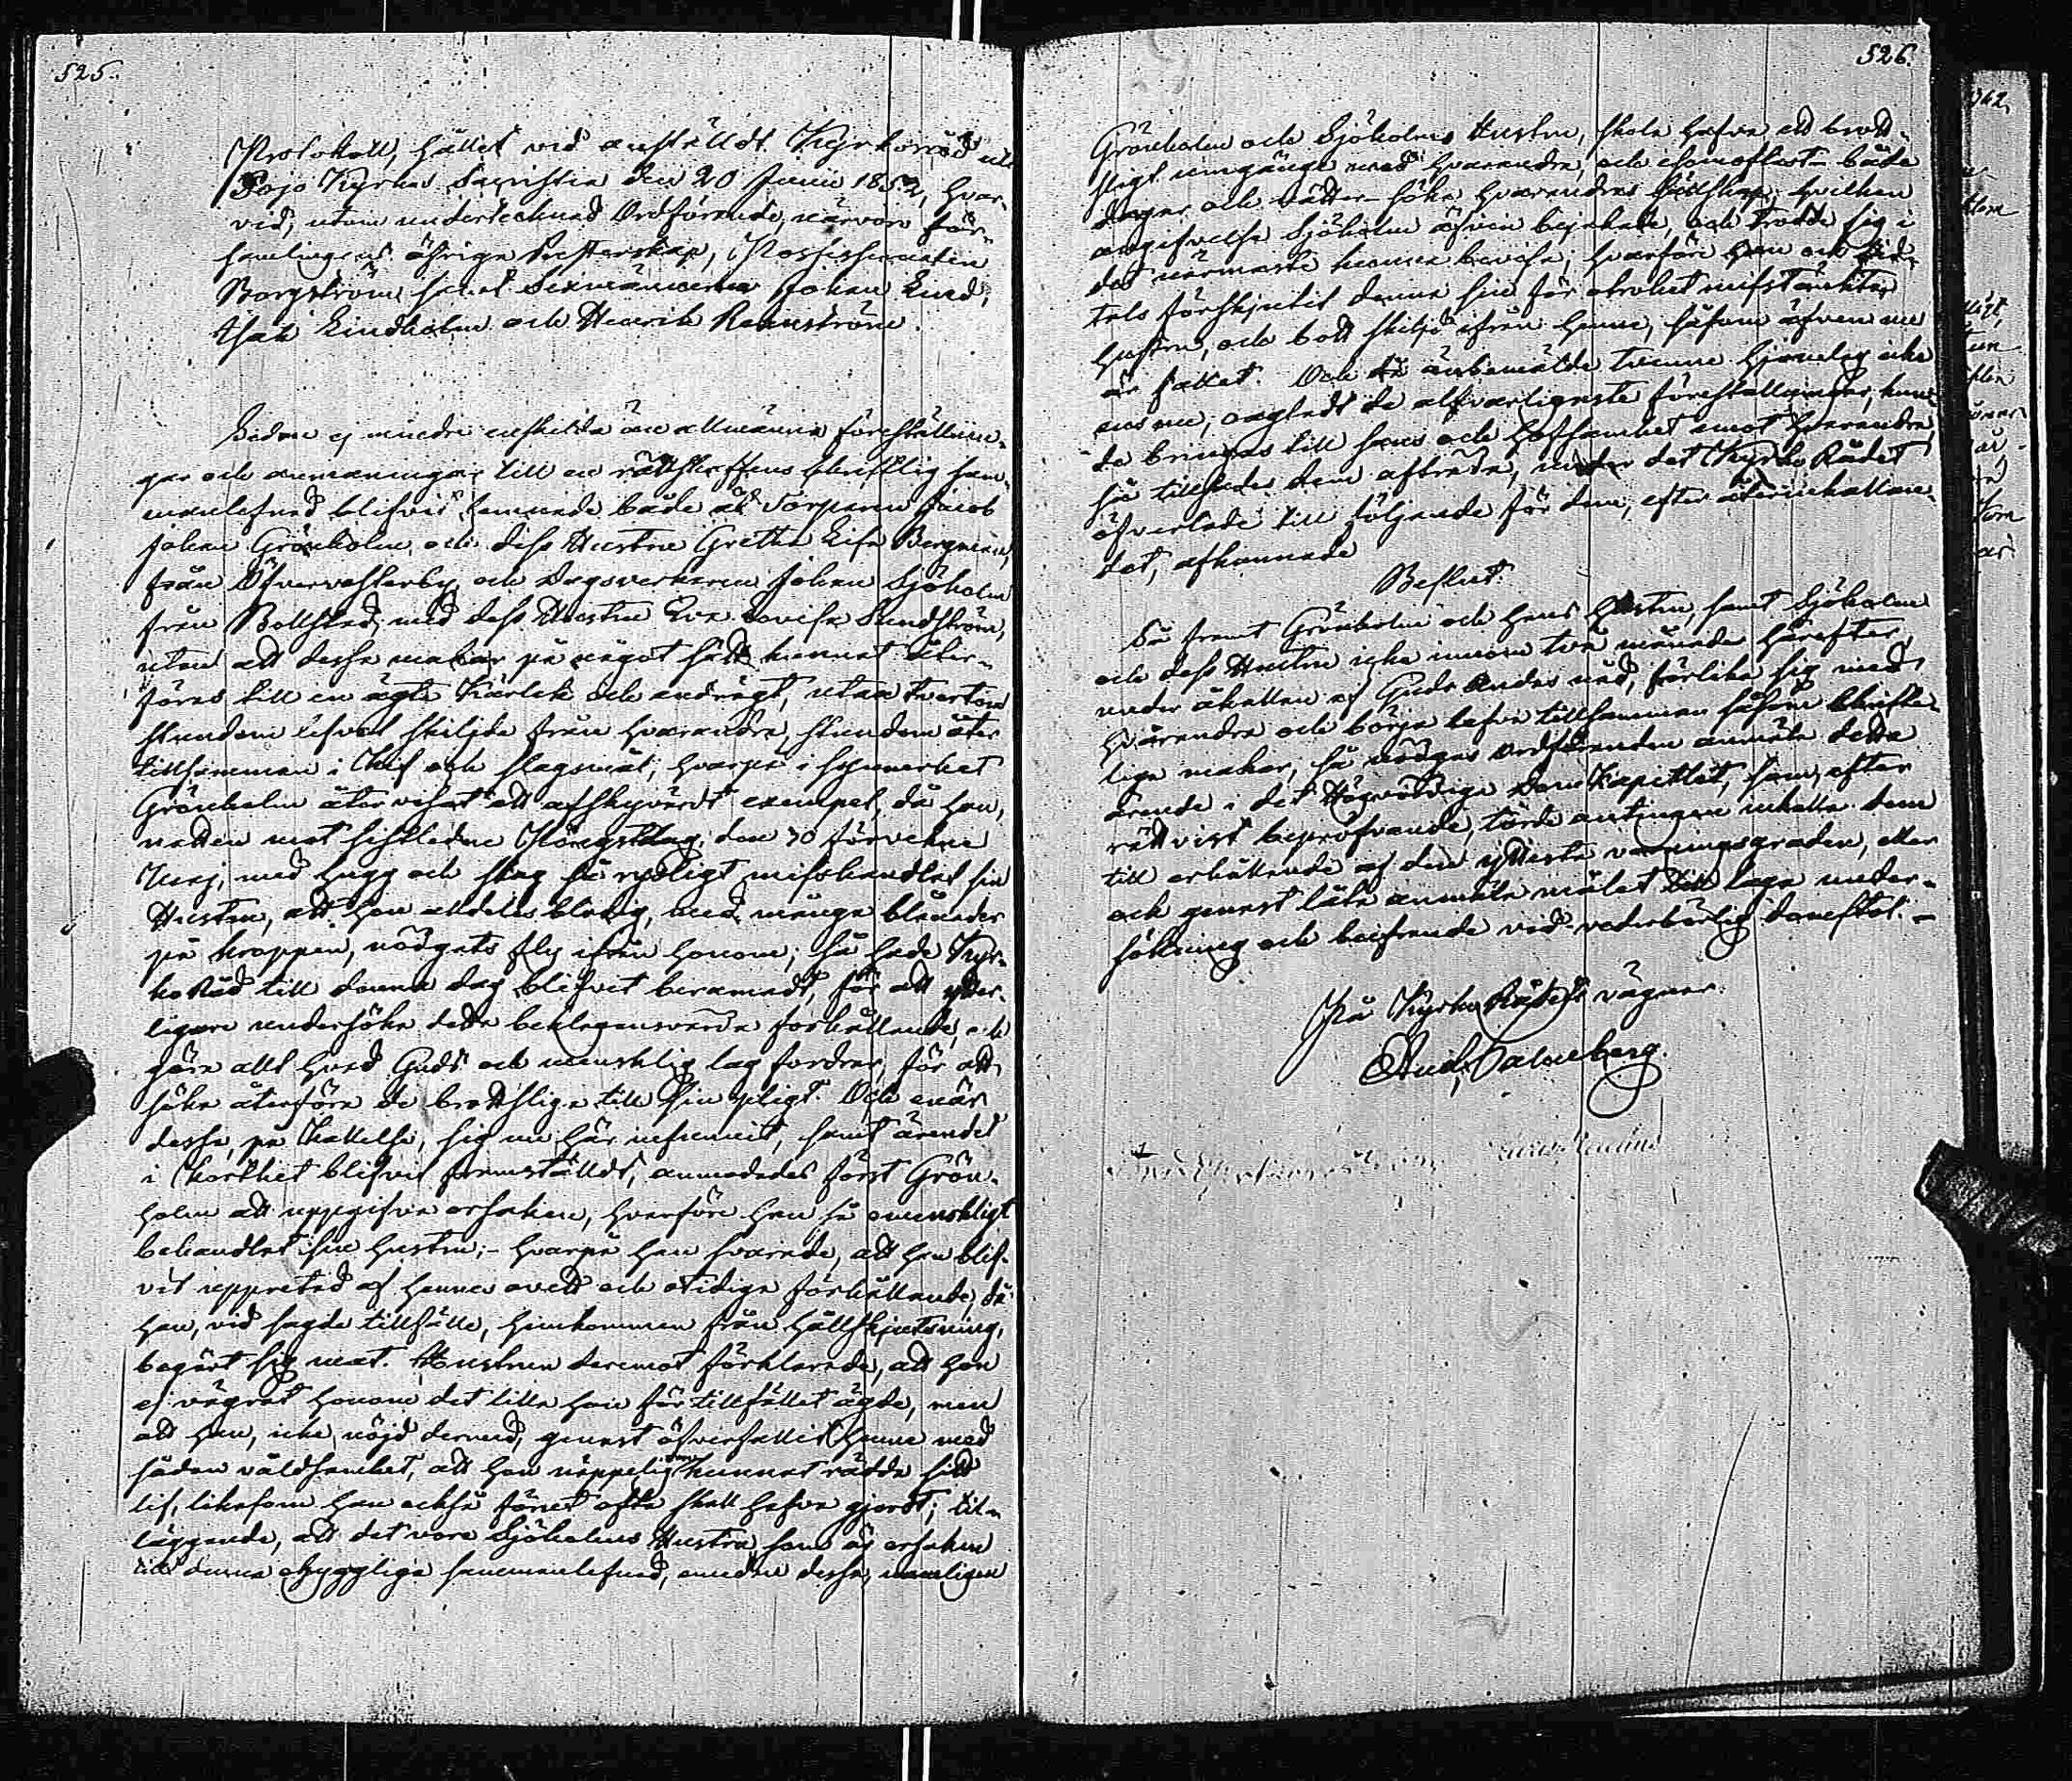 525.
Protokoll, hållet vid anställdt Kyrkoråd uti
Pojo Kyrkas Sacristia den 20 Junii 1852, hvar-
vid, utom undertecknad Ordförande, närvoro för-
samlingens öfriga Presterskap, Possessionaten
Borgström samt Sexmännerne Johan Lind,
Isak Lindholm och Henrik Renström.
Sedan ej mindre enskilda än allmänna föreställnin-
gar och anmaningar till en rättskaffens christlig sam-
manlefnad blifvit lemnade både åt Torparen Jacob
Johan Grönholm och dess Hustru Gretha Lisa Bergman,
från Öfvervesterby och Dagsverkaren Johan Sjöholm
från Bollstad, med dess Hustru Eva Lovisa Sundström,
utan att dessa makar på något sätt kunnat åter-
föras till en ägta kärlek och endrägt, utan tvertom
stundom lefvat skiljde från hvarandra, stundom åter
tillsamman i kif och slagsmål; hvarpå i synnerhet
Grönholm åter visat ett afskyvärdt exempel, då han,
natten mot sistledne Pingstdag, den 30 förvekne
Maj, med hugg och slag så rysligt misshandlat sin
Hustru, att hon alldeles blodig, med många blånader
på kroppen, nödgats fly ifrån honom; så hade Kyr-
ko Råd till denna dag blifvit beramadt, för att ytter-
ligare undersöka detta beklagansvärda förhållande, och
göra allt hvad Guds och mensklig lag fordrar, för att
söka återföra de brottsliga till sin pligt. Och enär
dessa, på kallelse, sig nu här infunnit, samt ärendet
i korthet blifvit framställdt, anmodades först Grön-
holm att uppgifva orsaken, hvarföre han så omenskligt
behandlat sin hustru; - hvarpå han svarade, att han blif-
vit uppretad af hennes ovett och otidiga förhållande, då
han, vid sagde tillfälle, hemkommen från hållskjutsning,
begärt sig mat. Hustrun deremot förklarade, att hon
ej vägrat honom det lilla hon för tillfället ägde, men
att han, icke nöjd dermed, genast öfverfallit henne med
sådan våldsamhet, att hon näppeligen kunnat rädda sitt
lif, likasom han också förut ofta skall hafva gjordt; til-
läggande, att det vore Sjöholms Hustru, som är orsaken
till denna ohyggliga sammanlefnad, medan dessa, nemligen
526.
Grönholm och Sjöholms Hustru, skola hafva ett brott-
sligt umgänge med hvarandra, och som oftast - både
dagar och nätter - söka hvarandras sällskap, hvilken
angifvelse Sjöholm äfven bejakade, och trodde sig i
det närmaste kunna bevisa; hvarföre han ock tid-
tals förskjutit denna sin för otrohet misstänkta
hustru, och bott skiljd ifrån henne, såsom äfven nu
är fallet. Och då änbemälde tvenne hjonelag icke
ens nu, oagtadt de alfvarligaste föreställningar, kun-
de bringas till sans och hofsamhet emot hvarandra,
så tillsades dem afträda, under det Kyrko Rådet
öfverlade till följande för dem, efter återinkallan-
det, afkunnade
Beslut:
Så framt Grönholm och hans Hustru, samt Sjöholm
och dess Hustru icke innom två månade härefter,
under åkallan af Guds Andas nåd, förlika sig med
hvarandra och börja lefva tillsamman såsom christe-
liga makar, så nödgas Ordföranden anmäla detta
ärende i det Högvördiga Dom Kapitlet, som, efter
rättvist bepröfvande, törde antingen inkalla dem
till erhållande af den yttersta varningsgraden, eller
ock genast låta anmäla målet till laga under-
sökning och beifrande vid vederbörlig domstol. -
På Kyrko Rådets vägnar:
And. Malmberg.